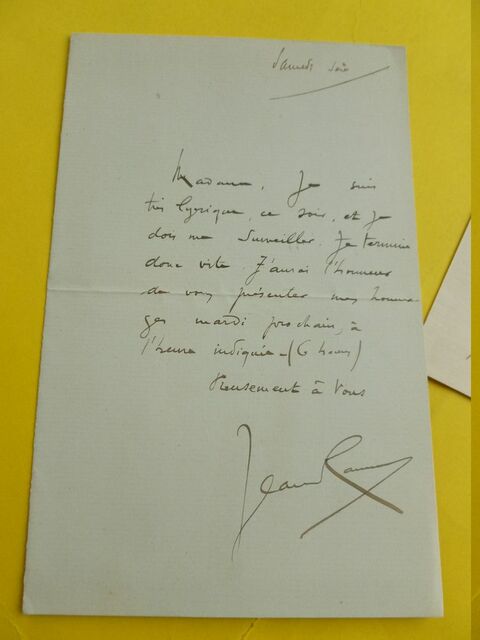 Samedi soir
Madame, Je suis
très lyrique, ce soir, et je
dois me surveiller. Je termine
donc vite. J'aurai l'honneur
de vous présenter mes homma-
ges mardi prochain, à
l'heure indiquée - (6 heures)
Pieusement à Vous
Jean